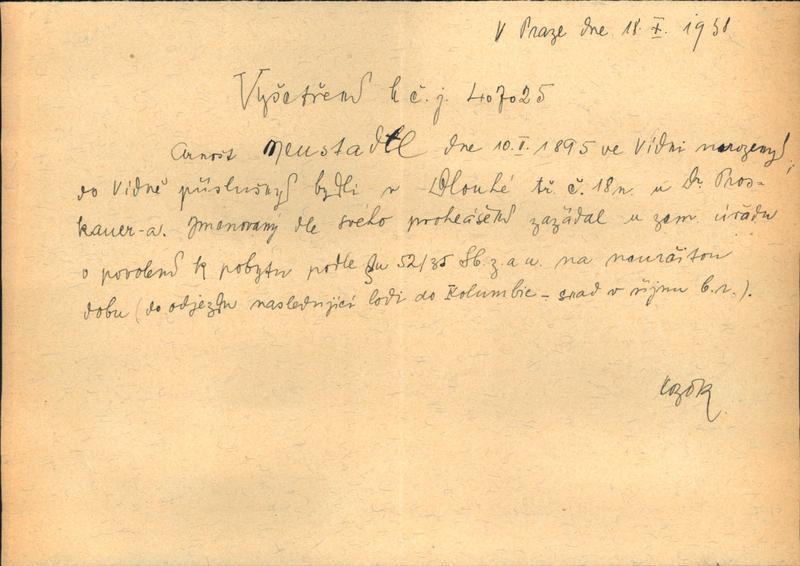 V Praze dne 18. X. 1938
Vyšetření k č. j. 407025
Arnošt Neustadtl dne 10. I. 1895 ve Vídni narozený,
do Vídně příslušný bydlí v Dlouhé tř. č. 18n. u Dr. Pros-
kauer-a. Jmenovaný dle svého prohlášení zažádal u zem. úřadu
o povolení k pobytu podle zu 52/35 Sb. z. a n. na neurčitou
dobu (do odjezdu následující lodi do Kolumbie - snad v říjnu b. r.).